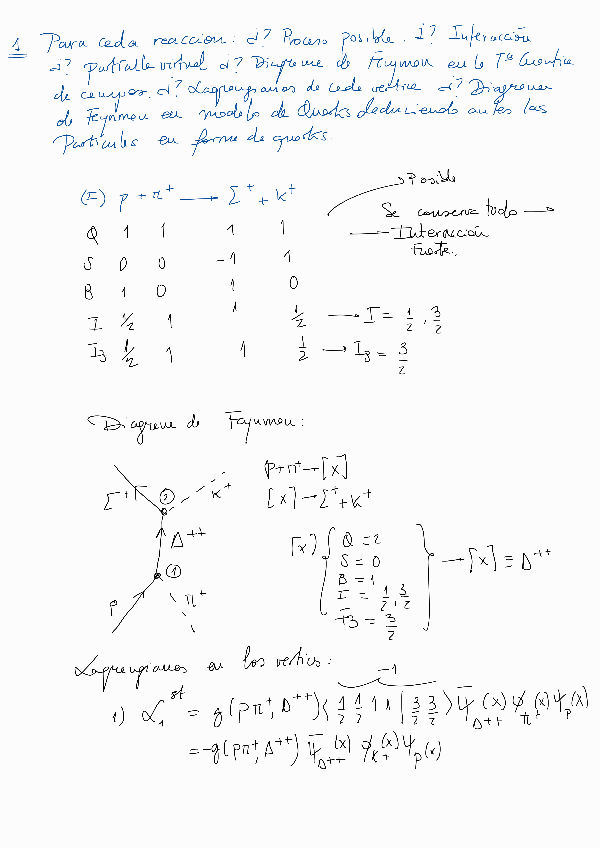 1 Para cada reaccion: ¿? Proceso posible. ¿? Interacción
¿? partícula virtual ¿? Diagrama de Feynman en la Tª Cuantica
de campos. ¿? Lagrangianos de cada vertice ¿? Diagrama
de Feynman en modelo de Quarks deduciendo antes las
Particulas en forma de quarks.
(I) p + π⁺ → Σ⁺ + K⁺
→ Posible
Se conserva todo →
→ Interacción
fuerte.
Q 1 1 1 1
S 0 0 -1 1
B 1 0 1 0
I 1/2 1 1 1/2 → I = 1/2, 3/2
I₃ 1/2 1 1 1/2 → I₃ = 3/2
Diagrama de Feynman:
Σ⁺ ② K⁺
Δ⁺⁺
①
p π⁺
p+π⁺→[x]
[x]→Σ⁺+K⁺
[x] { Q = 2
S = 0
B = 1
I = 1/2, 3/2
I₃ = 3/2 } → [x] ≡ Δ⁺⁺
Lagrangianos en los vertices:
-1
1) ℒ₁ˢᵗ = g(pπ⁺, Δ⁺⁺) ⟨ 1/2 1/2 1 1 | 3/2 3/2 ⟩ ψ̄_Δ⁺⁺(x) φ_π⁺(x) ψ_p(x)
= -g(pπ⁺, Δ⁺⁺) ψ̄_Δ⁺⁺(x) φ_K⁺(x) ψ_p(x)